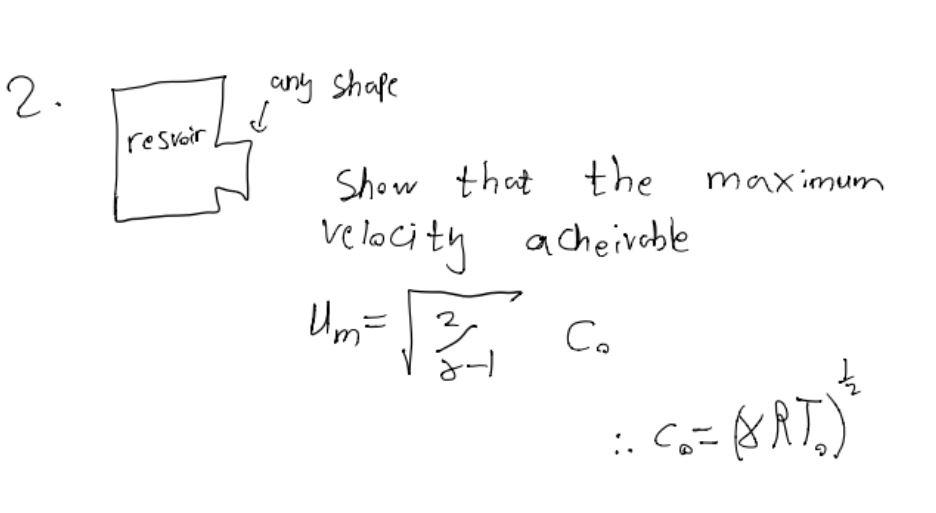 2.
any shape
resvoir
Show that the maximum
velocity acheivable
Uₘ = √(2/γ-1) C₀
∴ C₀ = (γRT₀)^(1/2)